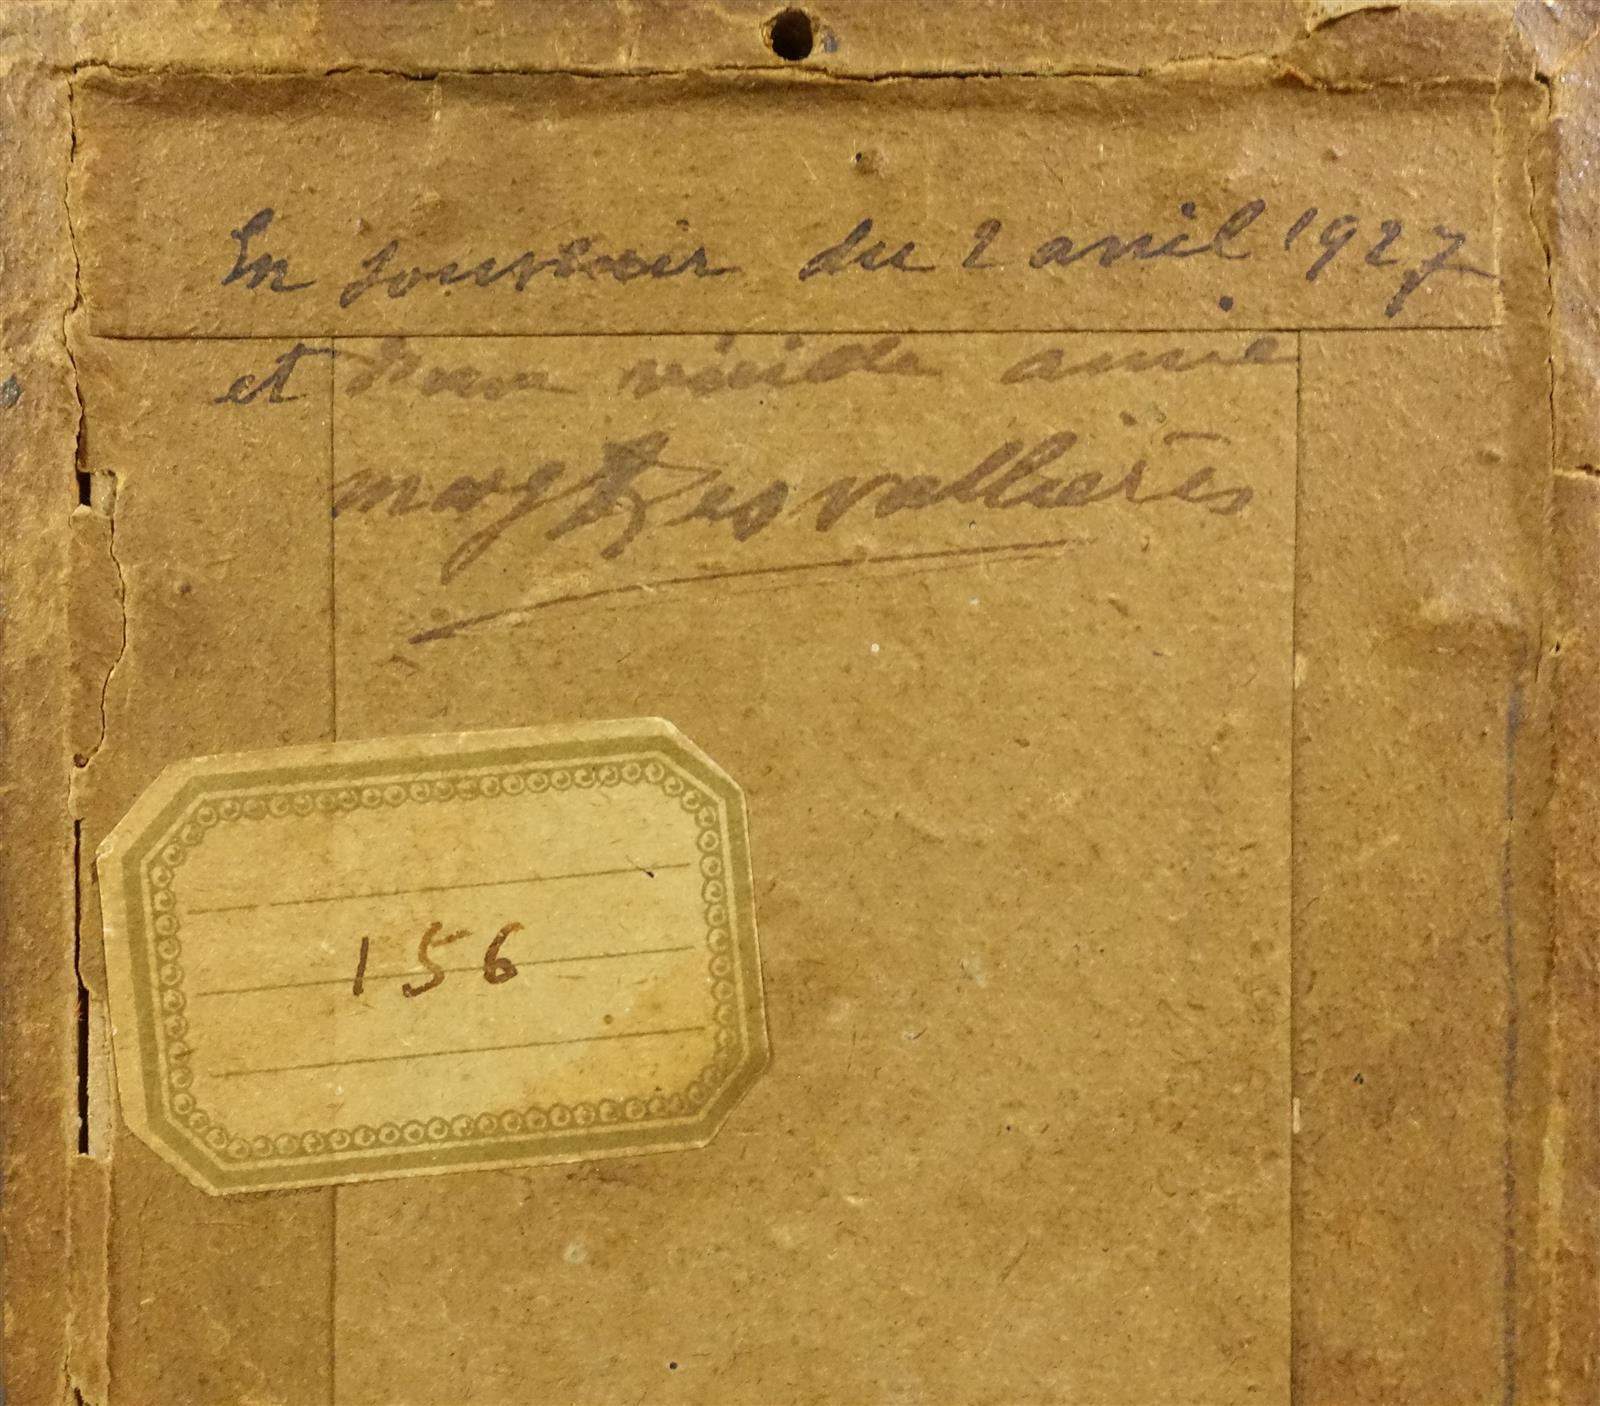 En souvenir du 2 avril 1927
et d'une vieille amie
Marg Desvallières
156